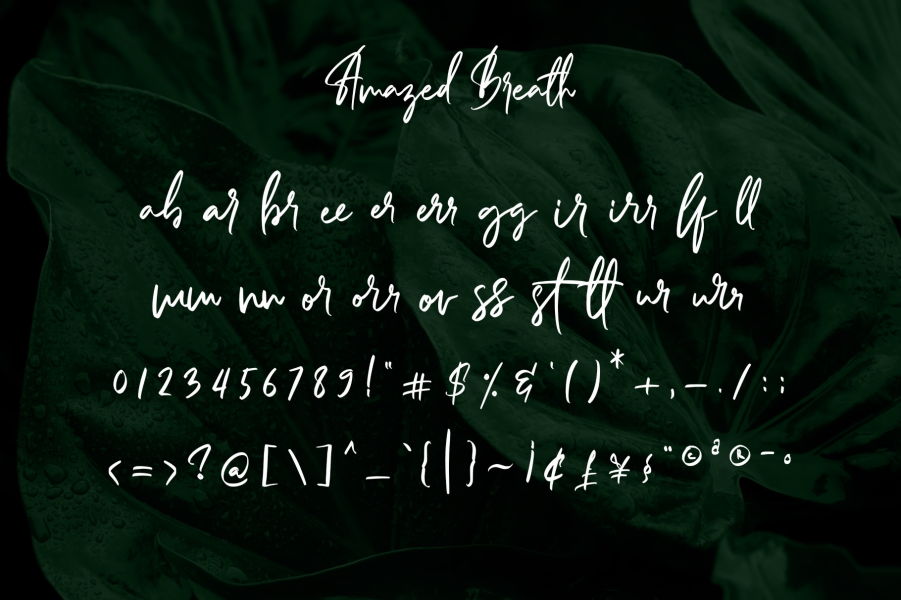 Amazed Breath
ab ar br ee er err gg ir irr lf ll
mm nn or orr ov ss st tt ur urr
0123456789!"#$%&'()*+,-./:;
<=>?@[\]^_`{|}~¡¢£¥§¨©ª®¯°